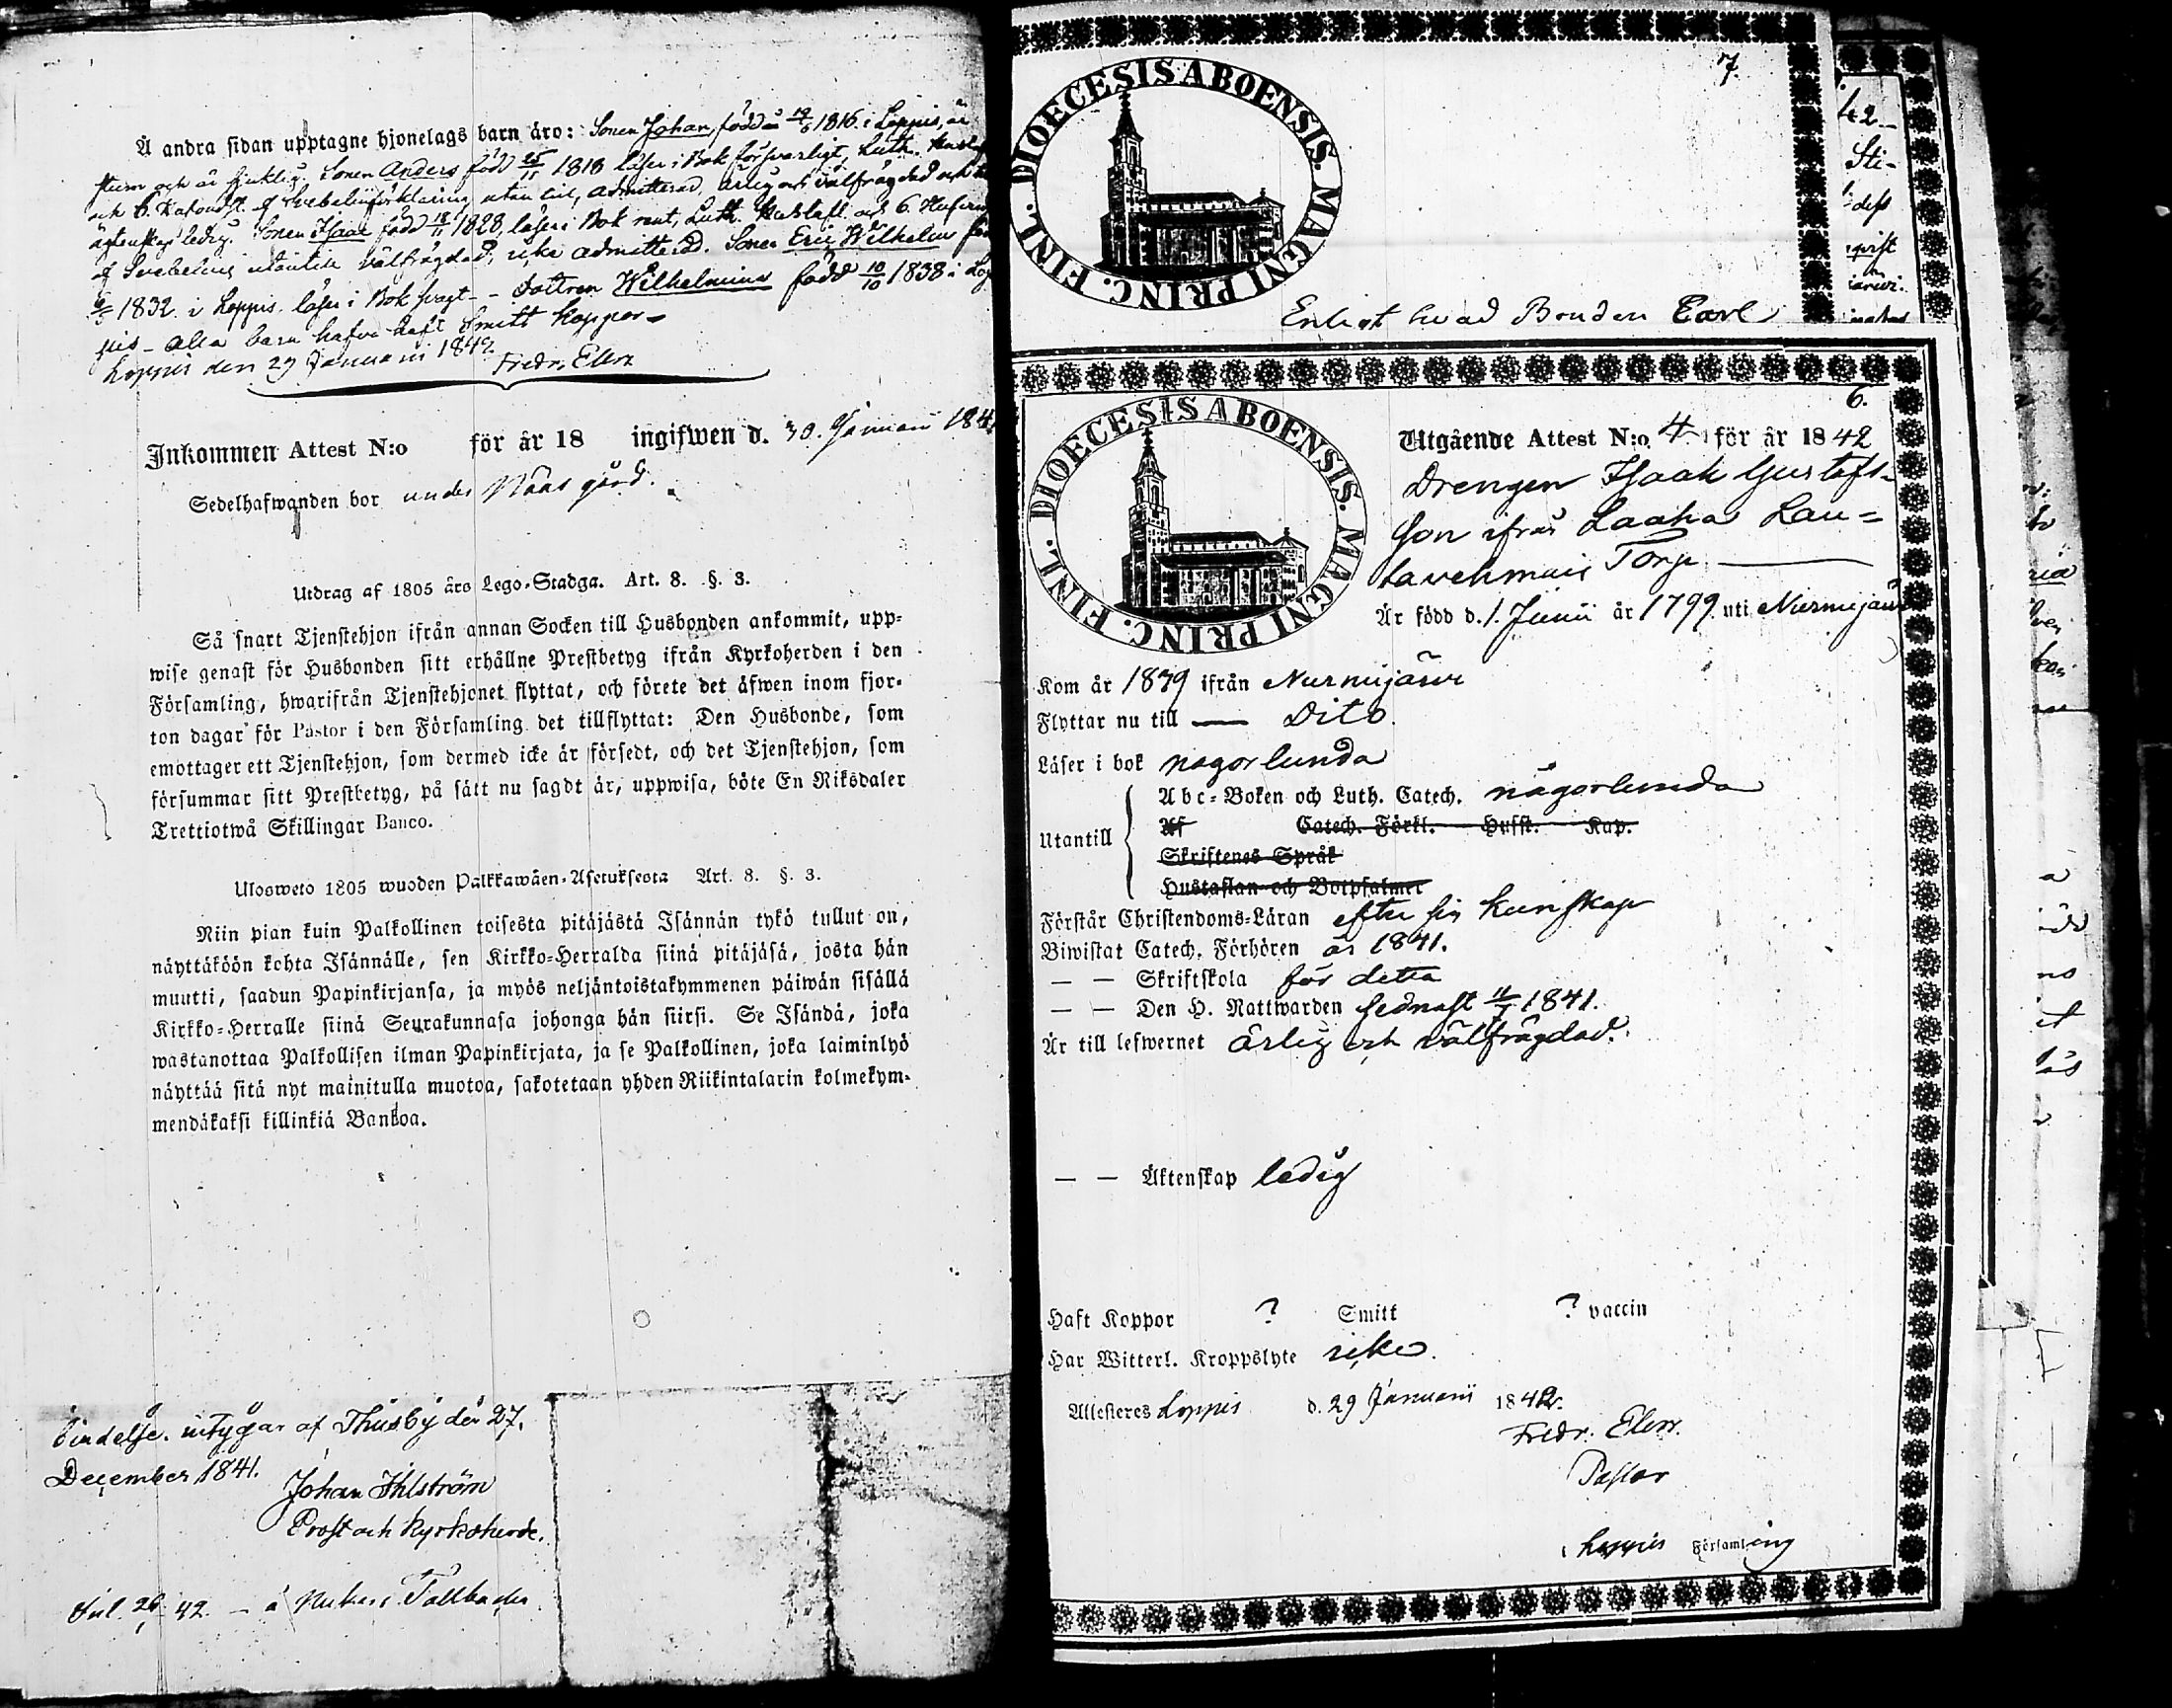 Å andra sidan upptagne hjonelags barn äro: Sonen Johan, född 1816 i Loppis, är
och är sjuklig. Sonen Anders född 25/11 1818 läser i Bok försvarligt, Luth.
och 6. af Svebelii förklaring utan till, admitterad, ärlig och välfrägdad och
ägtenskap ledig. Sonen Isaac född 18/11 1828, läser i Bok rent, Luth. och 6.
af Svebelius utantill välfrägdad, icke admitterad. Sonen Eric Wilhelm
1832 i Loppis läser i Bok svagt - Dottren Wilhelmina född 10/10 1838 i Lop
pis - Alla barn hafva haft Smitt koppor -
Loppis den 29 Januarii 1842
Fredr. Elers
Inkommen Attest N:o för år 18 ingifwen d. 30. Januarii 184
Sedelhafwanden bor under Näås gård.
Utdrag af 1805 års Lego-Stadga. Art. 8. §. 3.
Så snart Tjenstehjon ifrån annan Socken till Husbonden ankommit, upp-
wise genast för Husbonden sitt erhållne Prestbetyg ifrån Kyrkoherden i den
Församling, hwarifrån Tjenstehjonet flyttat, och förete det äfwen inom fjor-
ton dagar för Pastor i den Församling det tillflyttat: Den Husbonde, som
emottager ett Tjenstehjon, som dermed icke är försedt, och det Tjenstehjon, som
försummar sitt Prestbetyg, på sätt nu sagdt är, uppwisa, böte En Riksdaler
Trettiotwå Skillingar Banco.
Ulosweto 1805 wuoden Palkkawäen-Asetuksesta Art. 8. §. 3.
Niin pian kuin Palkollinen toisesta pitäjästä Isännän tykö tullut on,
näyttäköön kohta Isännälle, sen Kirkko-Herralda siinä pitäjäsä, josta hän
muutti, saadun Papinkirjansa, ja myös neljäntoistakymmenen päiwän sisällä
Kirkko-Herralle siinä Seurakunnasa johonga hän siirsi. Se Isändä, joka
wastanottaa Palkollisen ilman Papinkirjata, ja se Palkollinen, joka laiminlyö
näyttää sitä nyt mainitulla muotoa, sakotetaan yhden Riikintalarin kolmekym-
mendäkaksi killinkiä Bankoa.
intygar af Thusby den 27.
December 1841.
Johan Ihlström
Prost och Kyrkoherde.
42. - å Tallbacka
7.
DIOECESIS ABOENSIS. MAGNI PRINC. FINL.
Enligt hvad Bonden Carl
6.
DIOECESIS ABOENSIS. MAGNI PRINC. FINL.
Utgående Attest N:o 4 för år 1842
Drengen Isaak Gustafs-
son ifrån Laaha Lau-
Torp
Är född d. 1. Junii år 1799 uti Nurmijärvi
Kom år 1839 ifrån Nurmijärvi
Flyttar nu till — Dito.
Läser i bok nagorlunda
Utantill
Abc-Boken och Luth. Catech. någorlunda
Af Catech. Förkl. Husst. Kap.
Skriftenes Språk
Hustaflan och Botpsalmer
Förstår Christendoms-Läran efter sin kunskap
Biwistat Catech. Förhören år 1841.
— — Skriftskola för detta
— — Den H. Nattwarden sednast 1841.
Är till lefwernet ärlig och välfrägdad.
— — Äktenskap ledig
Haft Koppor ? Smitt ? vaccin
Har Witterl. Kroppslyte icke.
Attesteres Loppis d. 29 Januarii 1842.
Fredr. Elers.
Pastor
i Loppis Församling